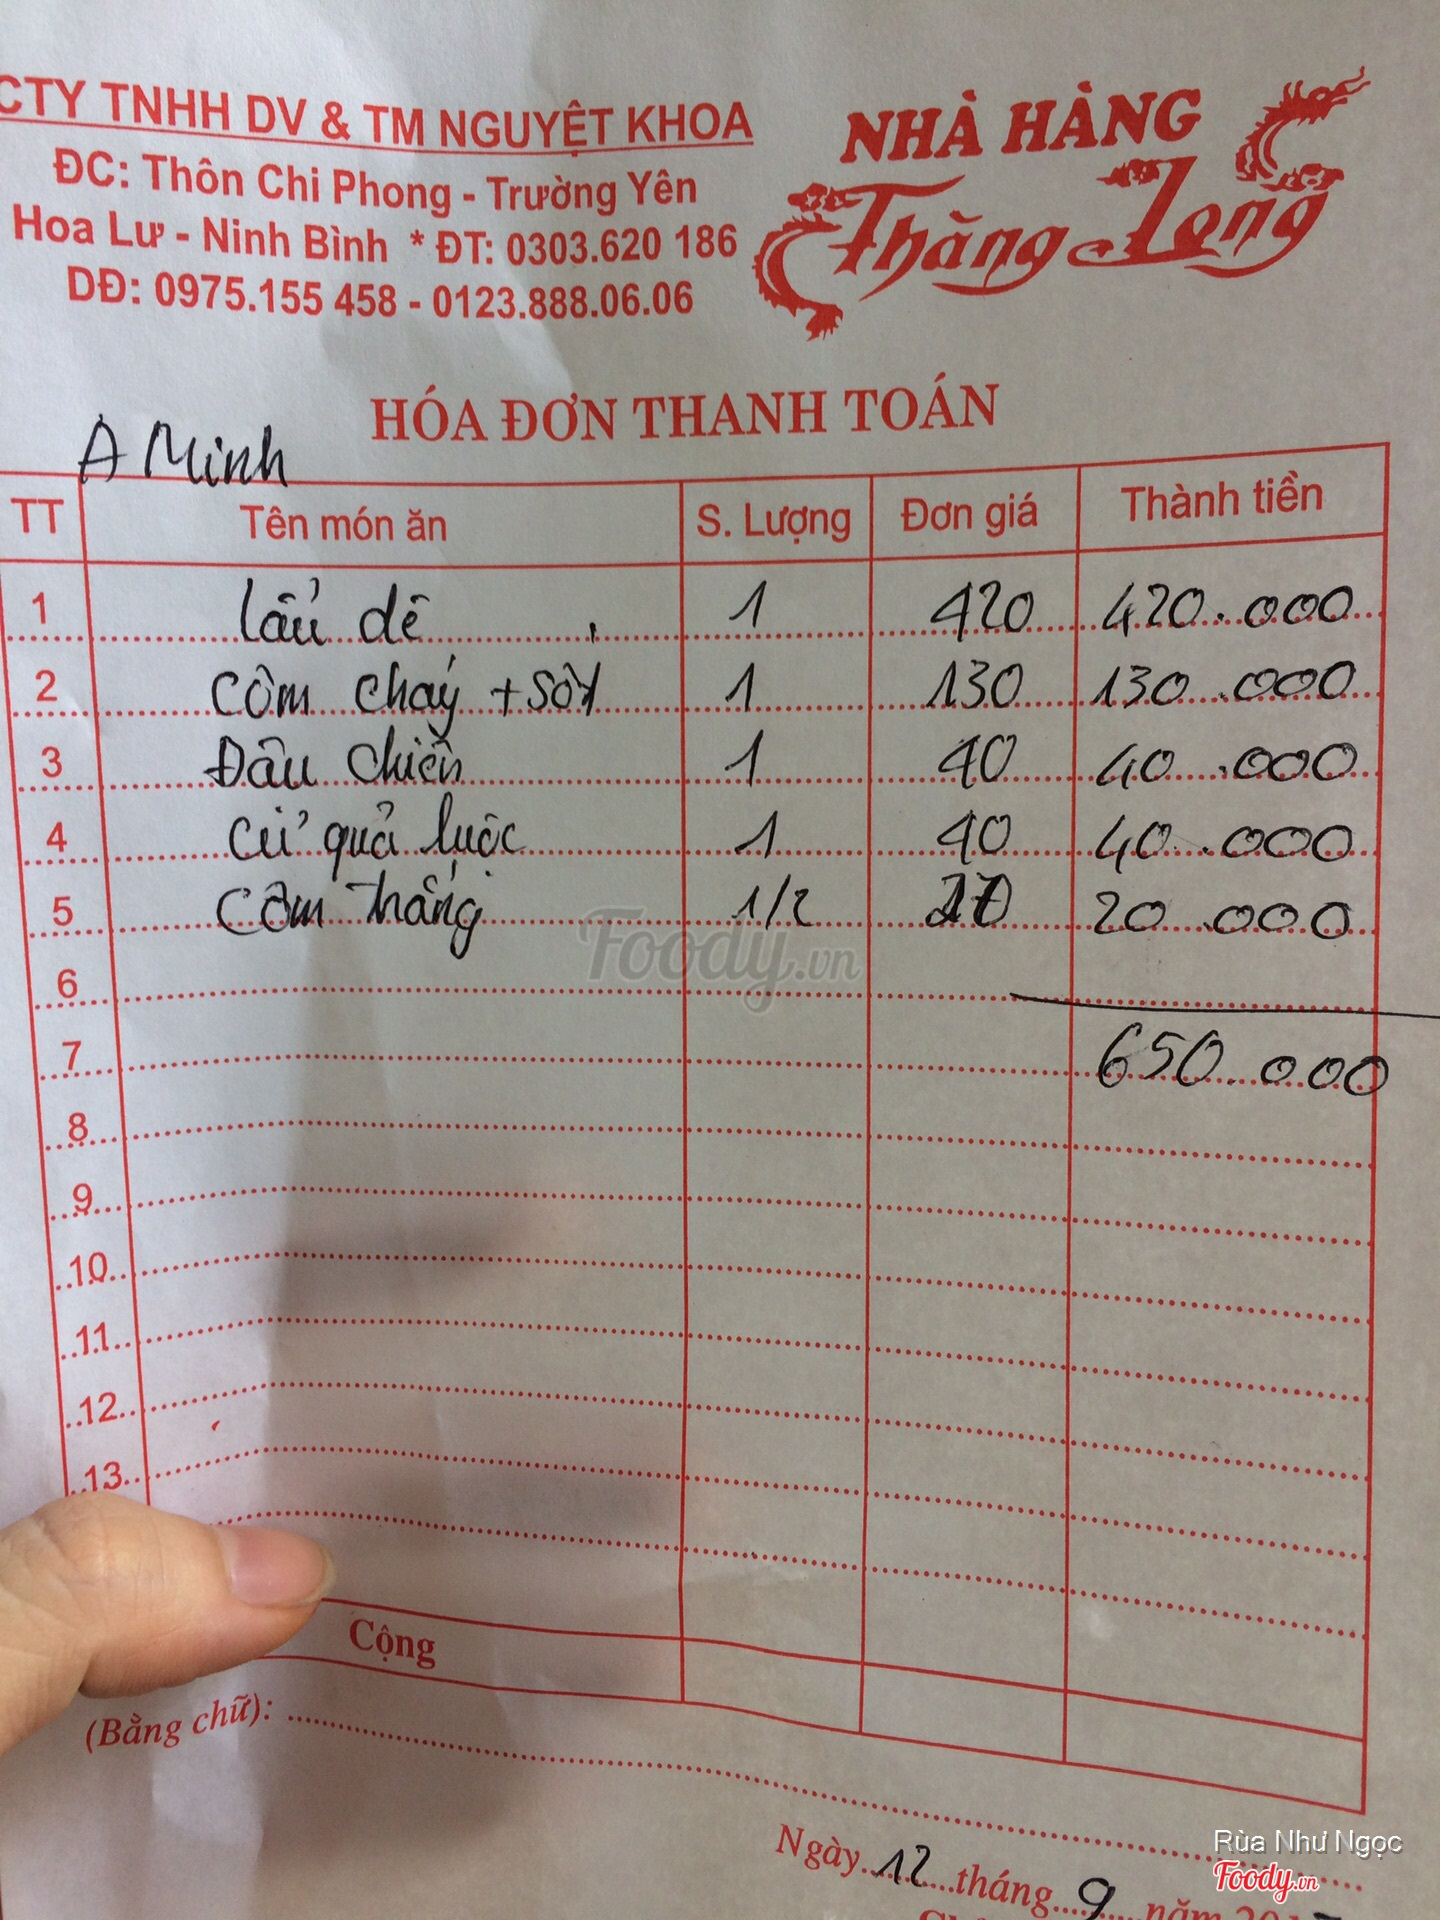 CTY TNHH DV & TM NGUYỆT KHOA
ĐC: Thôn Chi Phong - Trường Yên
Hoa Lư - Ninh Bình * ĐT: 0303.620 186
DĐ: 0975.155 458 - 0123.888.06.06
NHÀ HÀNG
Thăng Long
HÓA ĐƠN THANH TOÁN
A Minh
TT Tên món ăn S. Lượng Đơn giá Thành tiền
1 Lẩu dê 1 420 420.000
2 Cơm cháy + sốt 1 130 130.000
3 Đậu chiên 1 40 40.000
4 Củ quả luộc 1 40 40.000
5 Cơm trắng 1/2 20.000
6
650.000
7
8
9
10
11
12
13
Cộng
(Bằng chữ):
Ngày 12 tháng 9 năm
Foody.vn
Rùa Như Ngọc
Foody.vn